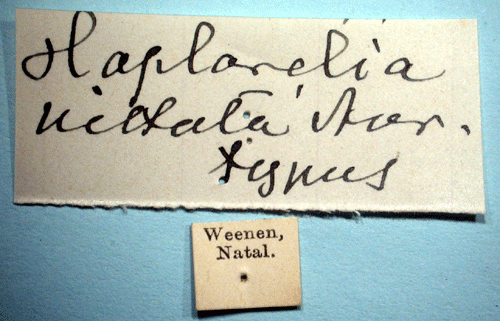 vittata Aur.
typus
Weenen,
Natal.